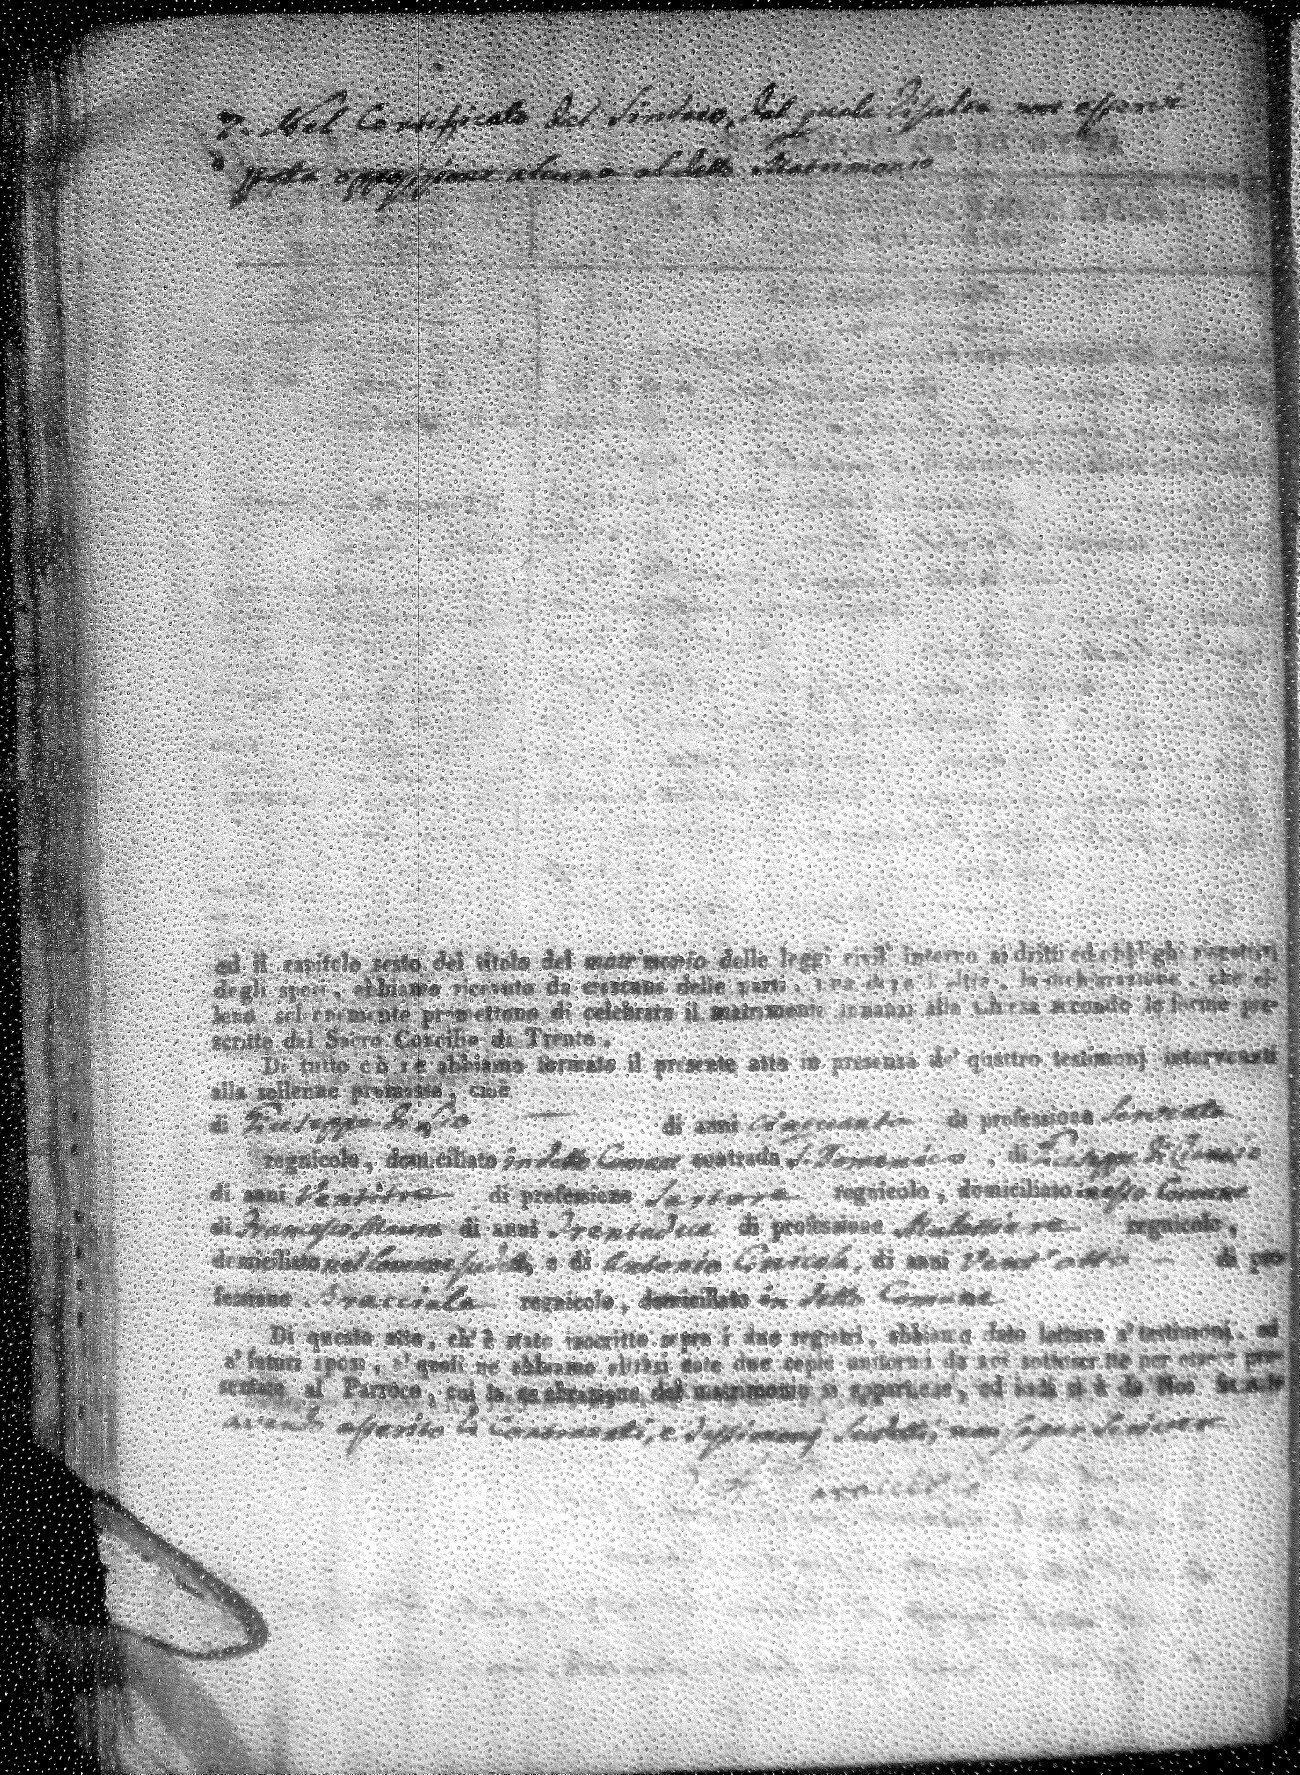 7. Nel Certificato del Sindaco, dal quale risulta non essersi
posta opposizione alcuna al detto Matrimonio
ed il capitolo sesto del titolo del matrimonio delle leggi civili intorno ai dritti ed obblighi rispettivi
degli sposi, abbiamo ricevuto da ciascuna delle parti, una dopo l'altra, la dichiarazione, che el-
leno solennemente promettono di celebrare il matrimonio innanzi alla Chiesa secondo le forme pre-
scritte dal Sacro Concilio di Trento.
Di tutto ciò ne abbiamo formato il presente atto in presenza de' quattro testimonj intervenuti
alla sollenne promessa, cioè
di Giuseppe di di anni cinquanta di professione
regnicolo, domiciliato in detto Comune contrada S. Domenico, di Giuseppe
di anni Ventitre di professione Sartore regnicolo, domiciliato in esso Comune
di Francesco di anni Trentadue di professione regnicolo,
domiciliato nel Comune sudetto, e di Antonio di anni Vent'otto di pro-
fessione Bracciale regnicolo, domiciliato in detto Comune
Di questo atto, ch'è stato inscritto sopra i due registri, abbiamo dato lettura a' testimonj, ed
a' futuri sposi, a' quali ne abbiamo altresì date due copie uniformi da noi sottoscritte per essere pre-
sentate al Parroco, cui la celebrazione del matrimonio si appartiene, ed indi si è da Noi firmato
avendo asserito li Contraenti, e testimonj sudetti, non saper scrivere